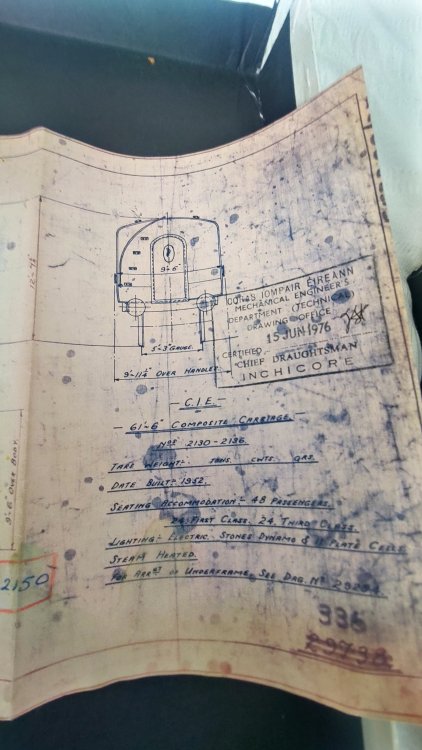 12'-4½"
9'-6"
5'-3" GAUGE.
9'-11¼" OVER HANDLES
CÓRAS IOMPAIR ÉIREANN
MECHANICAL ENGINEER'S
DEPARTMENT (TECHNICAL)
DRAWING OFFICE
15 JUN 1976
CERTIFIED
CHIEF DRAUGHTSMAN
INCHICORE
— C.I.E. —
— 61'-6" COMPOSITE CARRIAGE. —
NOS 2130-2136.
TARE WEIGHT:- TONS. CWTS. QRS.
DATE BUILT:- 1952.
SEATING ACCOMMODATION:- 48 PASSENGERS.
24 FIRST CLASS. 24 THIRD CLASS.
LIGHTING:- ELECTRIC. STONES DYNAMO & 11 PLATE CELLS
STEAM HEATED.
FOR ARRGT OF UNDERFRAME, SEE DRG. No
9'-6" OVER BODY.
2150
336